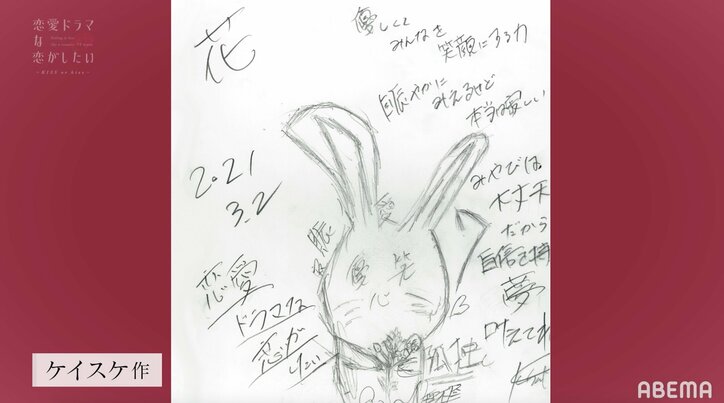 恋愛ドラマ
な
恋がしたい
~KISS or kiss~
花
優しくて
みんなを
笑顔にする力
賑やかに
みえるけど
本当は寂しい
2021
3.2
恋愛
ドラマな
恋が
したい
愛
賑
優 笑
心
みやびは
大丈夫
だから
自信を持
夢
叶えてね
孤独
ケイスケ作
ABEMA